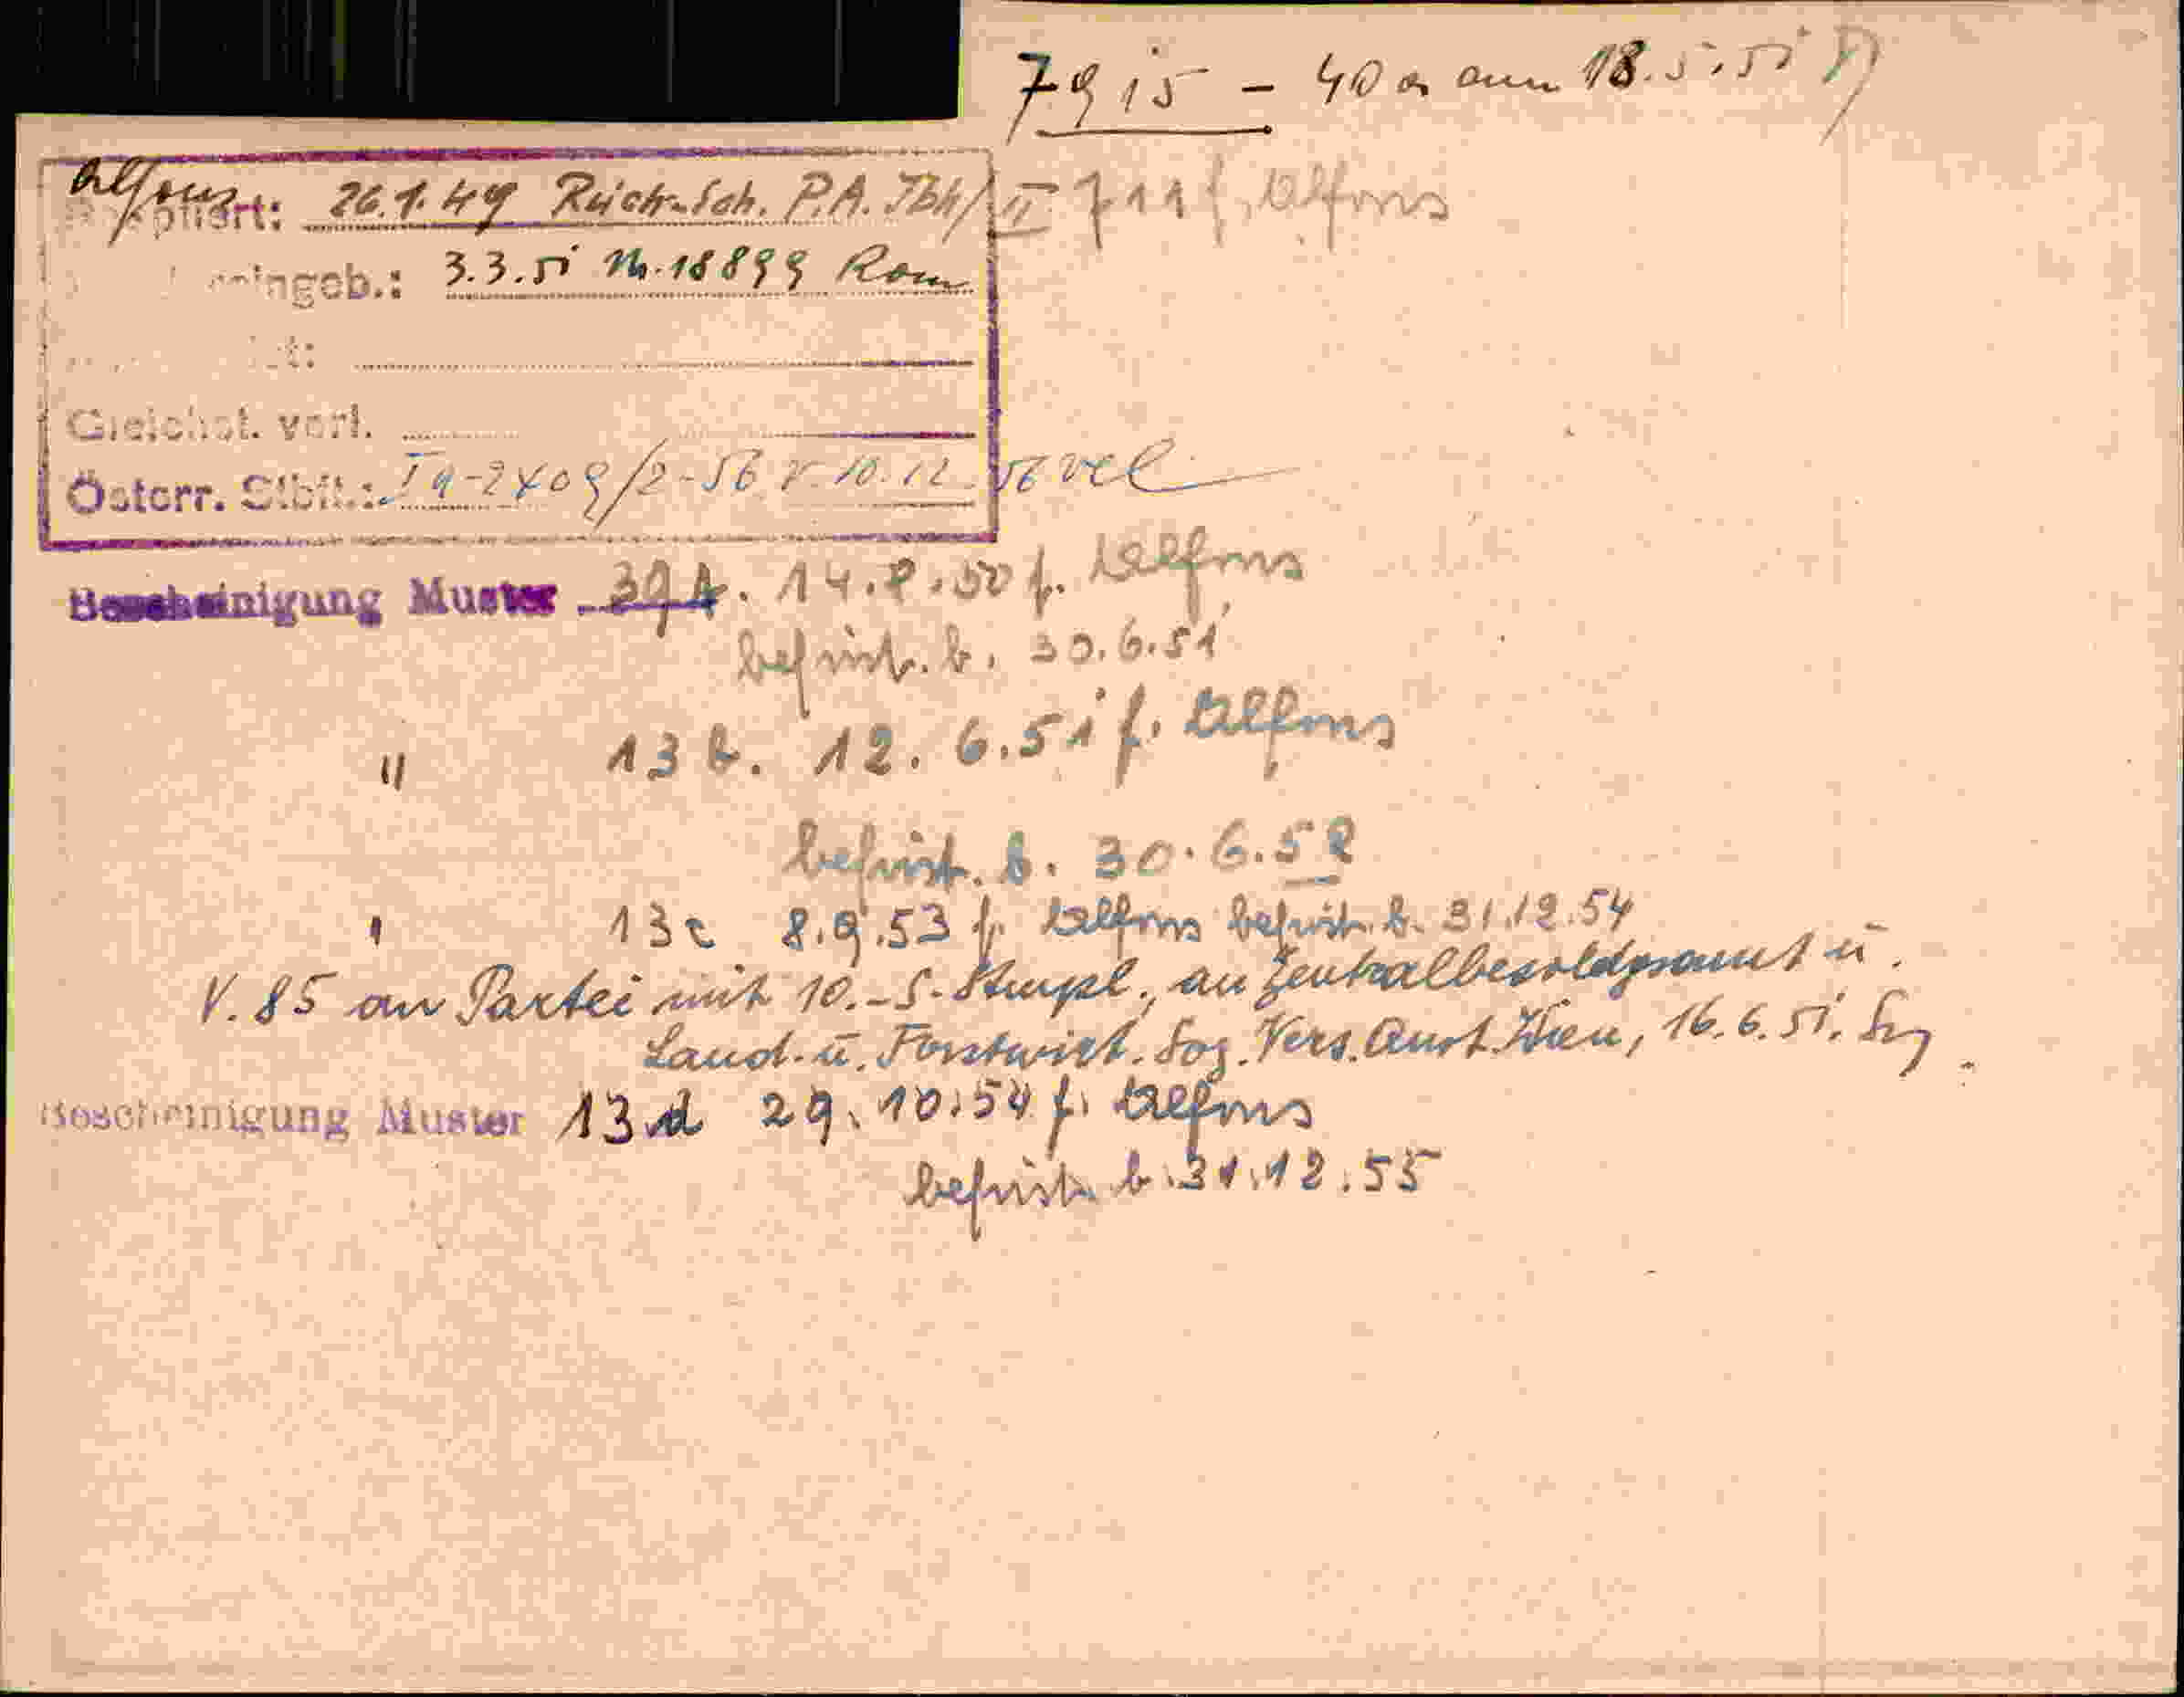 7915 - 40 a am 18.5.51
Alfons: 26.1.49 Rück-Sch. P.A. Jbk/II 711 f. Alfons
eingeb.: 3.3.51 Nr. 18899 Rom
Gleichst. verl.
Österr. Stbft.: Ia-2409/2-56 v. 10.12.56 verl
Bescheinigung Muster 39 A. 14.8.50 f. Alfons
befrist. b. 30.6.51
" 13 b. 12. 6.51 f. Alfons
befrist. b. 30.6.52
" 13 c 8.9.53 f. Alfons befrist. b. 31.12.54
V. 85 an Partei mit 10.-S. Stempel, an Zentralbesoldgsamt u.
Land- u. Forstwirt. Soz. Vers. Anst. Wien, 16.6.51.
Bescheinigung Muster 13 d 29.10.54 f. Alfons
befrist. b. 31.12.55